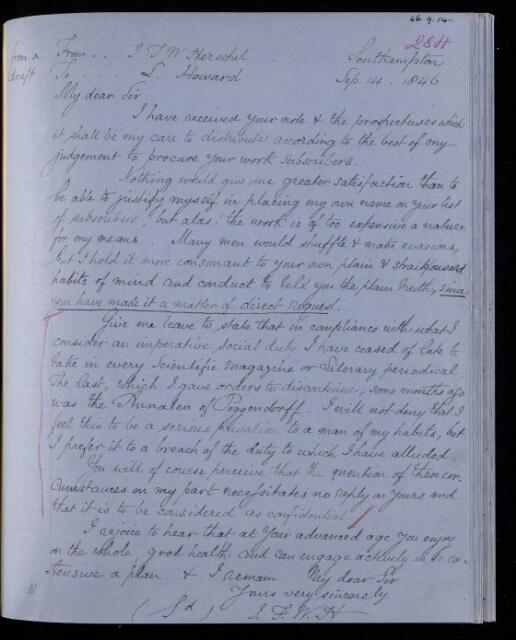 46.9.14
284
from a draft
From . . . J F W Herschel . . Southampton
To . . . L. Howard Sep 14. 1846
My dear Sir
I have received your note & the prospectuses which
it shall be my care to distribute according to the best of my
judgement to procure your work subscribers.
Nothing would give me greater satisfaction than to
be able to justify myself in placing my own name on your list
of subscribers, but alas! the work is of too expensive a nature
for my means. Many men would shuffle & make evasions,
but I hold it more consonant to your own plain & straitforward
habits of mind and conduct to tell you the plain truth, since
you have made it a matter of direct request.
Give me leave to state that in compliance with what I
consider an imperative social duty I have ceased of late to
take in every Scientific Magazine or Literary periodical
The last, which I gave orders to discontinue, some months ago
was the Annalen of Poggendorff. I will not deny that I
feel this to be a serious privation to a man of my habits, but
I prefer it to a breach of the duty to which I have alluded.
You will of course perceive that the mention of these cir-
cumstances on my part necessitates no reply on yours and
that it is to be considered as confidential
I rejoice to hear that at your advanced age you enjoy
on the whole, good health, and can engage actively in so ex-
tensive a plan & I remain My dear Sir
Yours very sincerely
(Sd) J. F. W. H